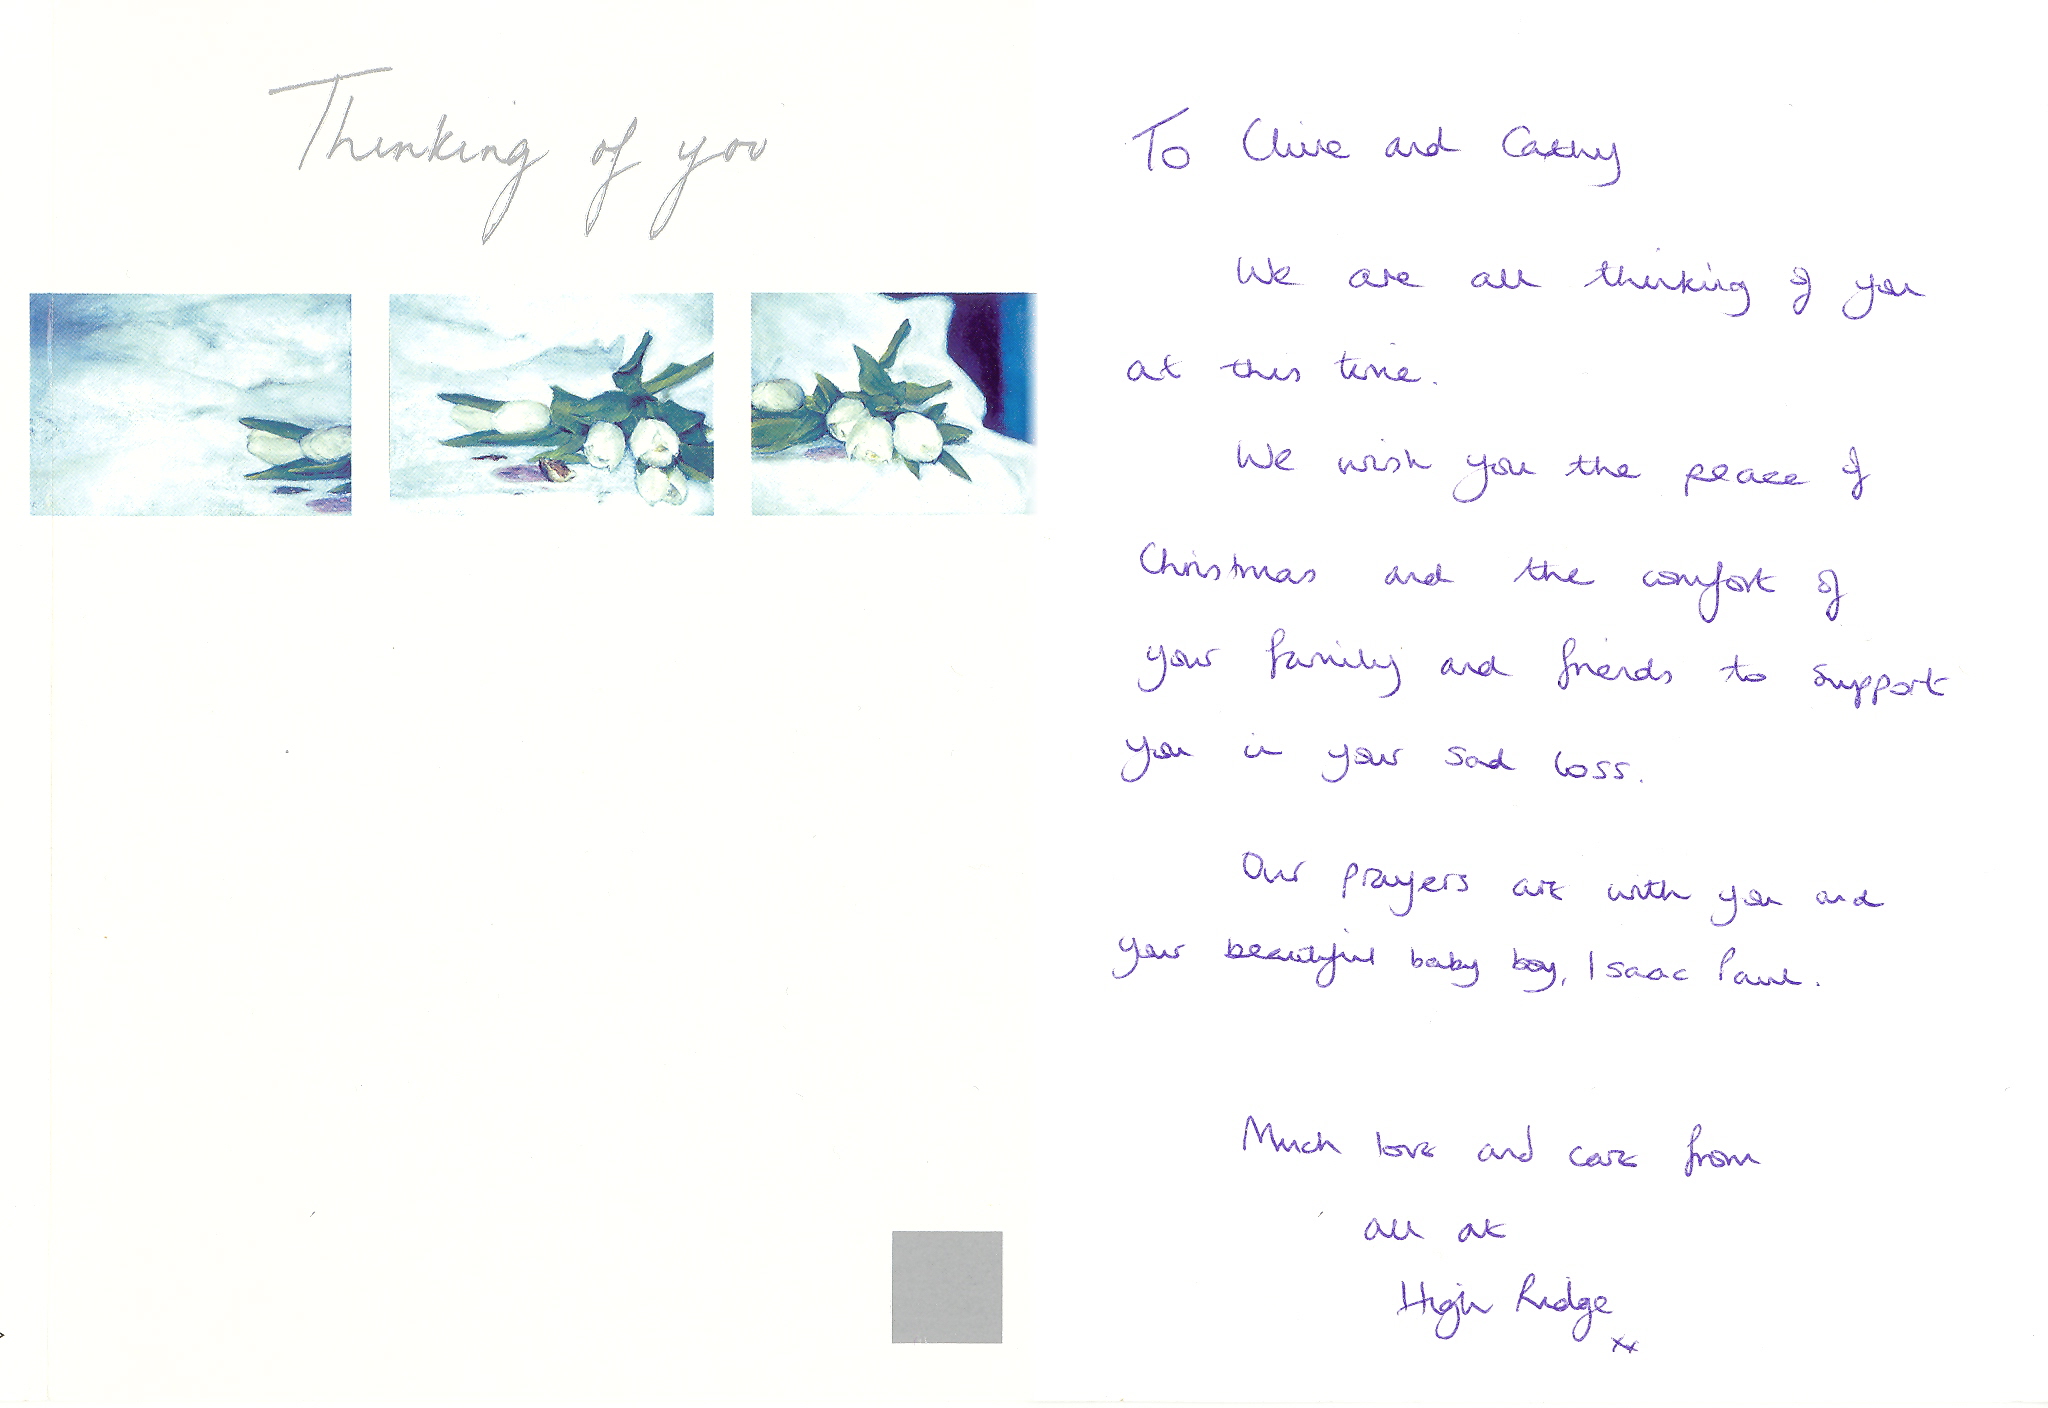 Thinking of you
To Clive and Cathy
We are all thinking of you
at this time.
We wish you the peace of
Christmas and the comfort of
your family and friends to support
you in your sad loss.
Our prayers are with you and
your beautiful baby boy, Isaac Paul.
Much love and care from
all at
High Ridge
xx